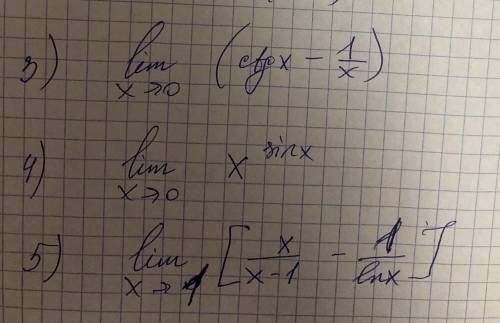 3) lim x→0 (ctgx - 1/x)
4) lim x→0 x^sinx
5) lim x→1 [x/(x-1) - 1/lnx]